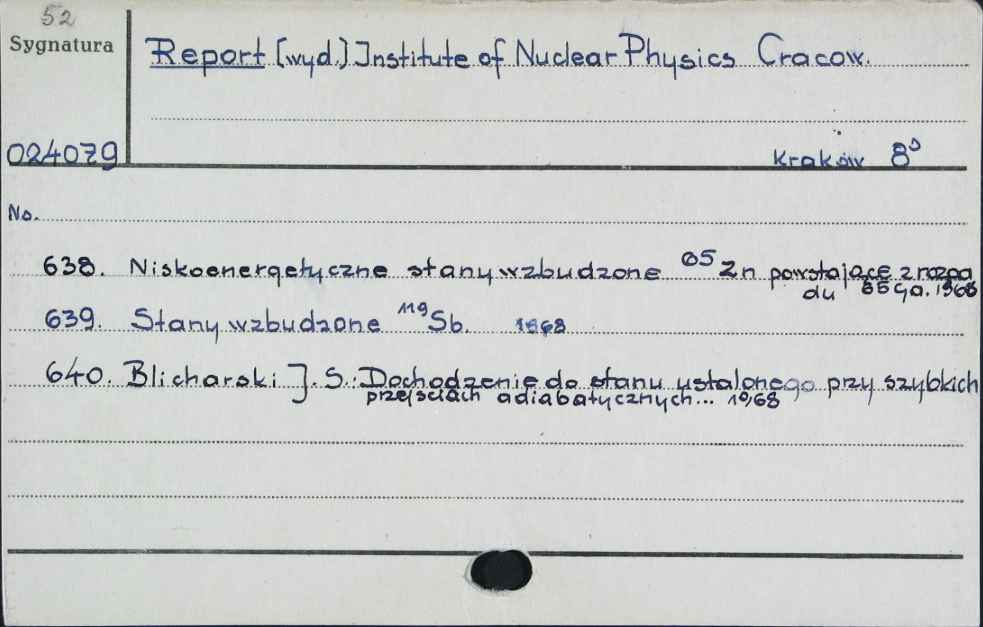 52
Sygnatura
Report [wyd.] Institute of Nuclear Physics Cracow.
024079
Kraków 8°
No.
638. Niskoenergetyczne stany wzbudzone 65Zn powstające z rozpa
du 65Ga. 1968
639. Stany wzbudzone 119Sb. 1968
640. Blicharski J. S.: Dochodzenie do stanu ustalonego przy szybkich
przejściach adiabatycznych... 1968